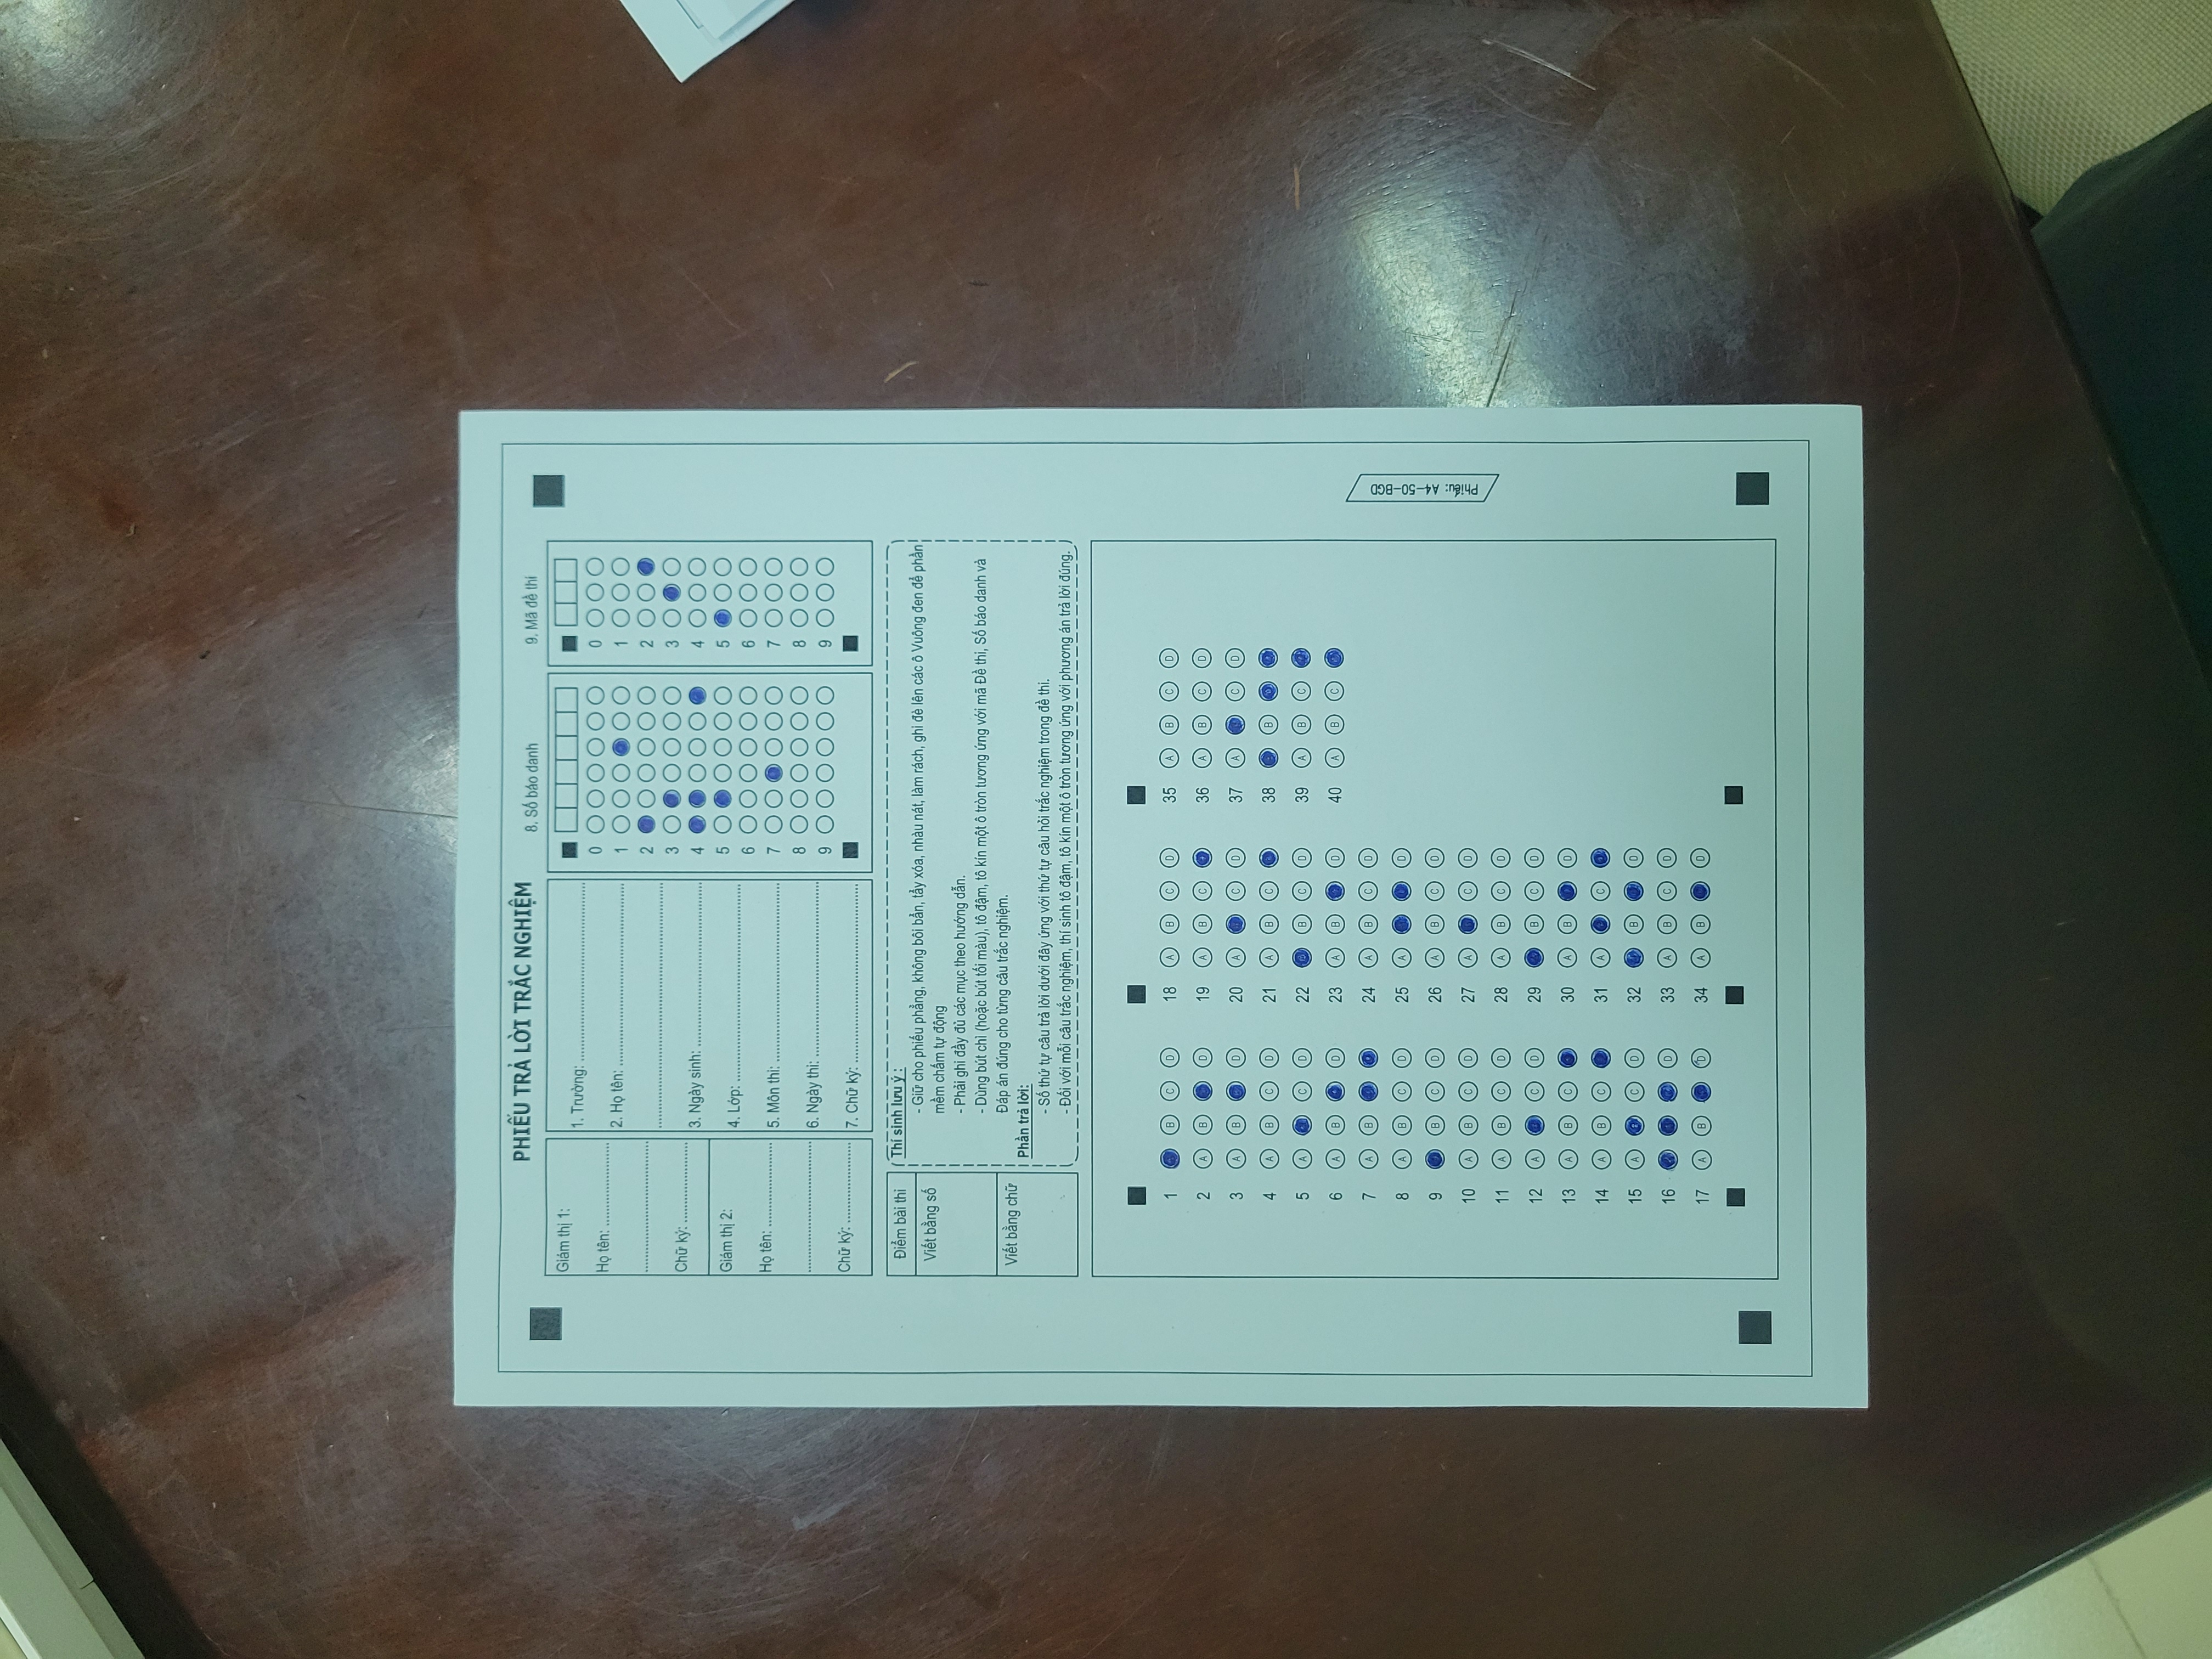 PHIẾU TRẢ LỜI TRẮC NGHIỆM
8. Số báo danh
9. Mã đề thi
Giám thị 1:
Họ tên: ....................
Chữ ký: ....................
Giám thị 2:
Họ tên: ....................
Chữ ký: ....................
1. Trường: ....................
2. Họ tên: ....................
3. Ngày sinh: ....................
4. Lớp: ....................
5. Môn thi: ....................
6. Ngày thi: ....................
7. Chữ ký: ....................
0 0
1 1
2 2
3 3
4 4
5 5
6 6
7 7
8 8
9 9
Điểm bài thi
Viết bằng số
Viết bằng chữ
Thí sinh lưu ý :
- Giữ cho phiếu phẳng, không bôi bẩn, tẩy xóa, nhàu nát, làm rách, ghi đè lên các ô Vuông đen để phần
mềm chấm tự động
- Phải ghi đầy đủ các mục theo hướng dẫn.
- Dùng bút chì (hoặc bút tối màu), tô đậm, tô kín một ô tròn tương ứng với mã Đề thi, Số báo danh và
Đáp án đúng cho từng câu trắc nghiệm.
Phần trả lời:
- Số thứ tự câu trả lời dưới đây ứng với thứ tự câu hỏi trắc nghiệm trong đề thi.
- Đối với mỗi câu trắc nghiệm, thí sinh tô đậm, tô kín một ô tròn tương ứng với phương án trả lời đúng.
1 B C D
2 A B D
3 A B D
4 A B C D
5 A C D
6 A B D
7 A B
8 A B C D
9 B C D
10 A B C D
11 A B C D
12 A C D
13 A B C
14 A B C
15 A C D
16 D
17 A B D
18 A B C D
19 A B C
20 A C D
21 A B C
22 B C D
23 A B D
24 A B C D
25 A D
26 A B C D
27 A C D
28 A B C D
29 B C D
30 A B D
31 A C
32 B D
33 A B C D
34 A B D
35 A B C D
36 A B C D
37 A C D
38 B
39 A B C
40 A B C
Phiếu: A4-50-BGD